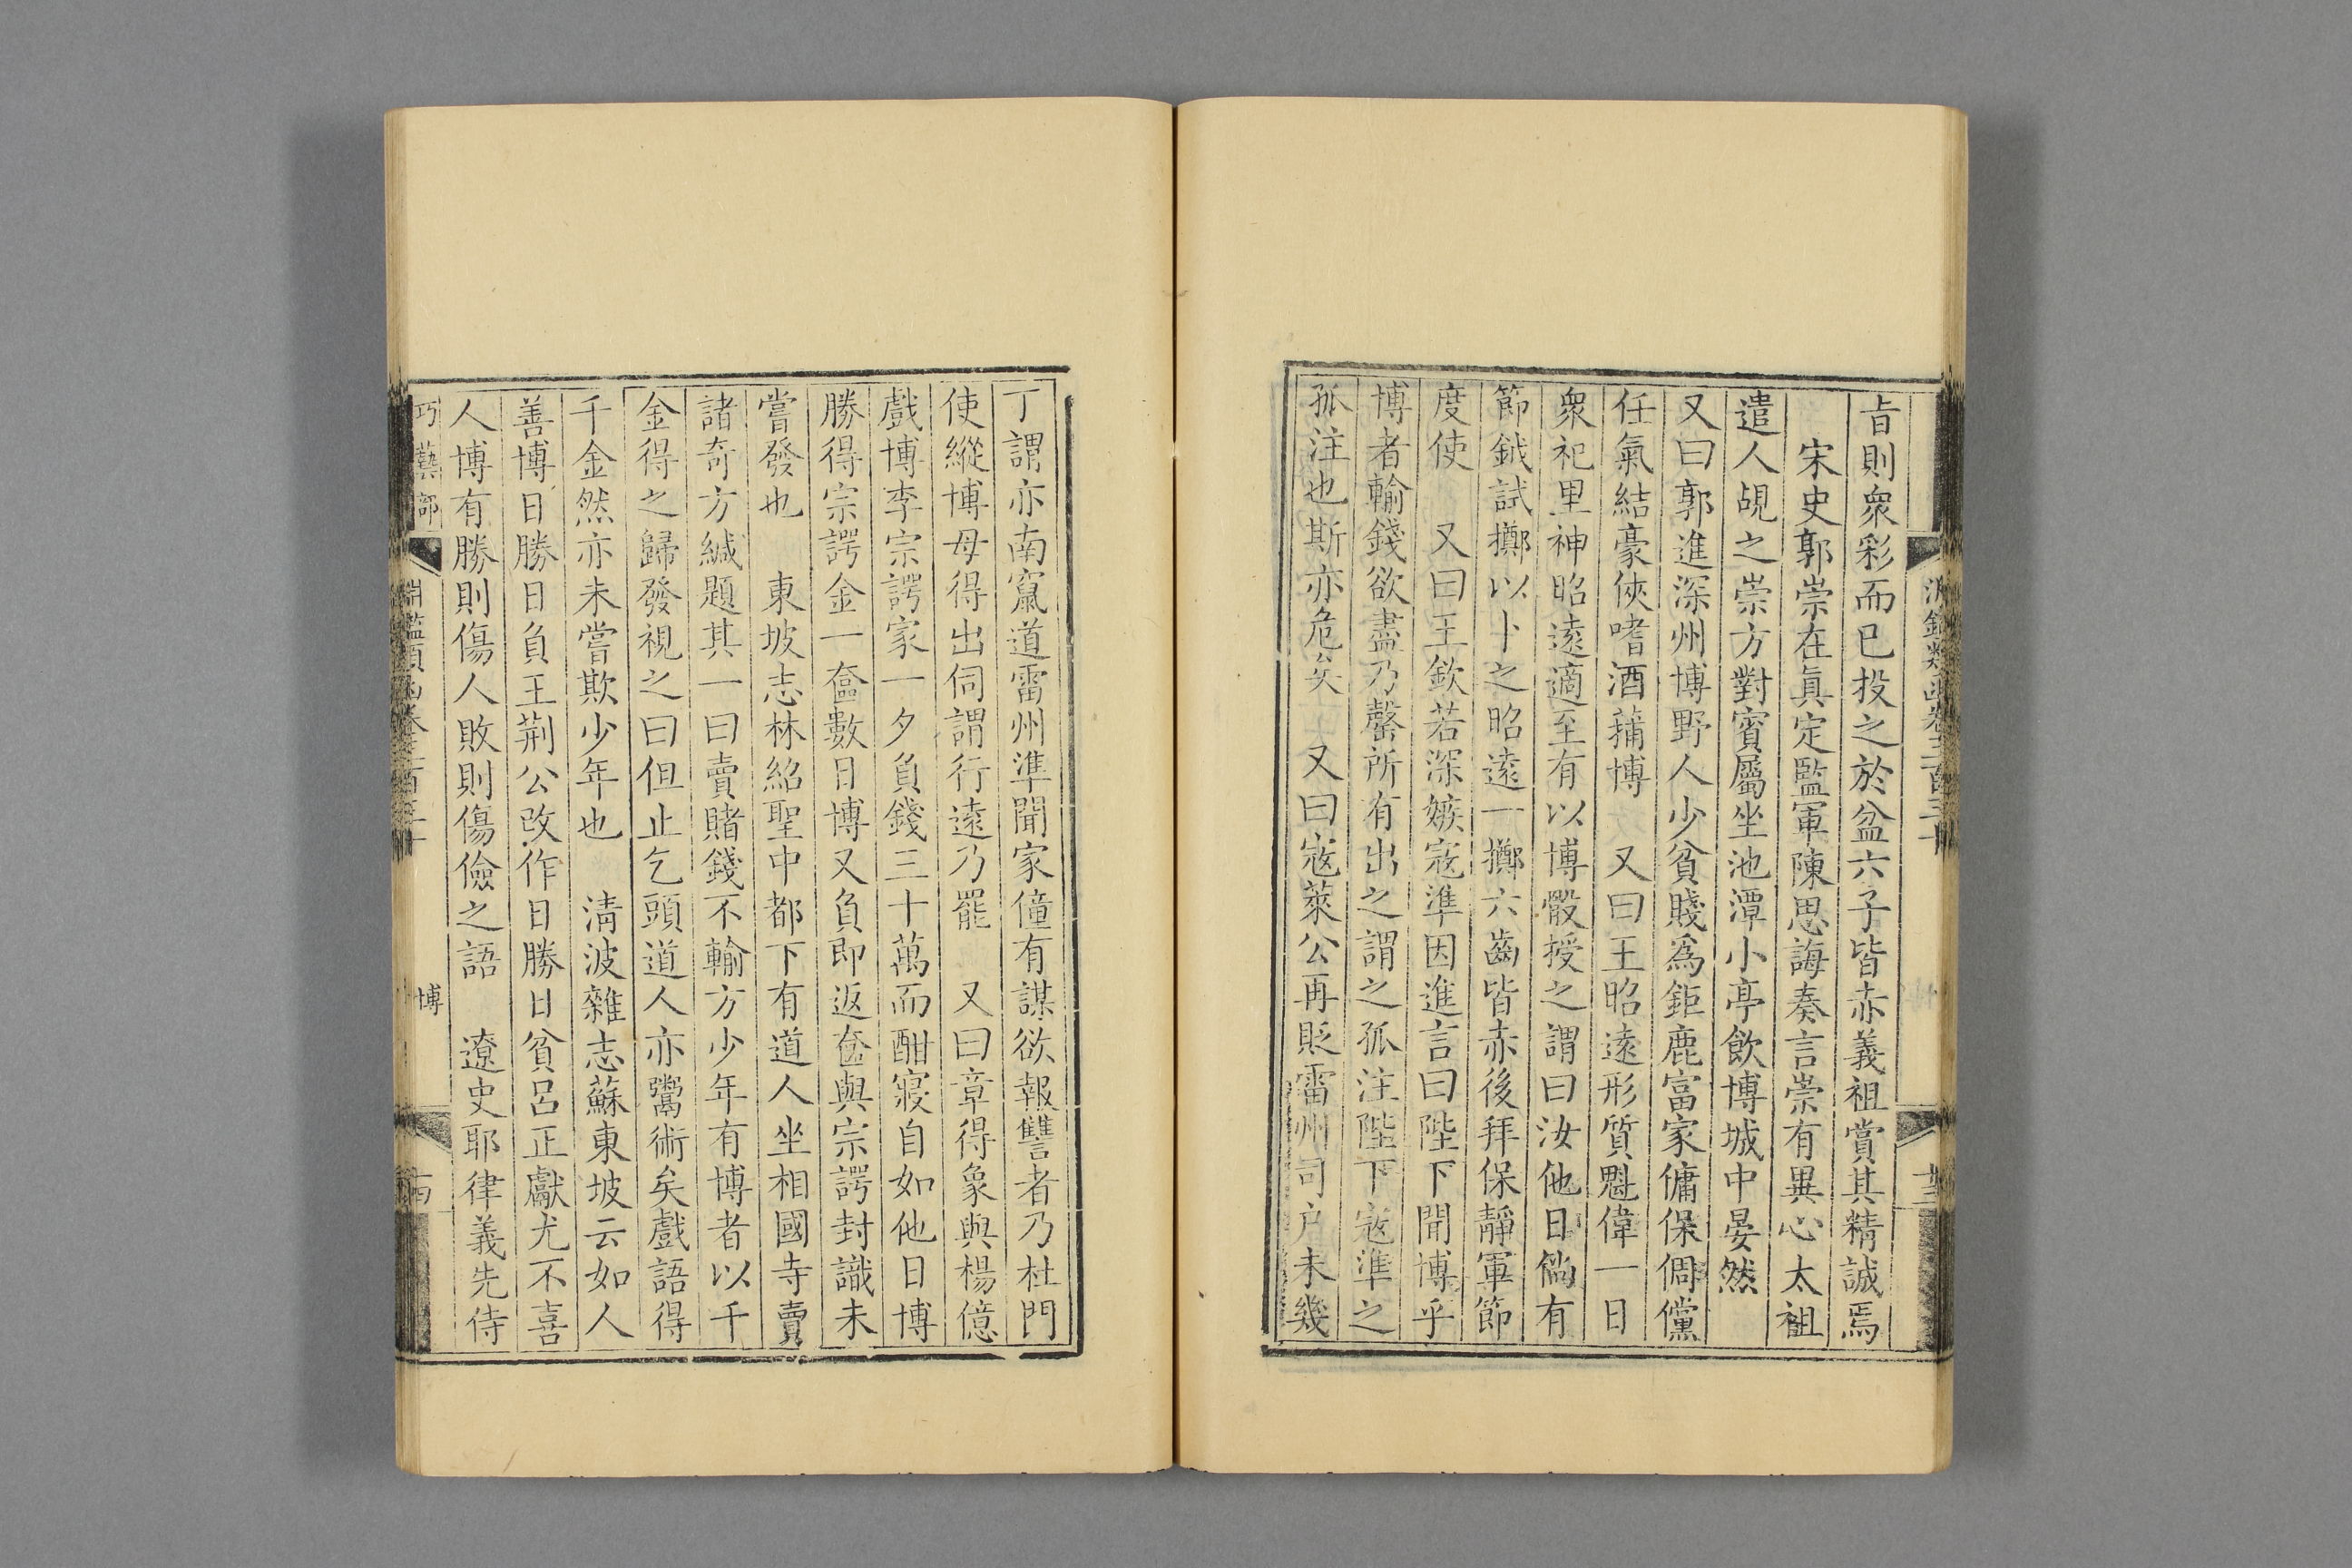 旨則衆彩而已投之於盆六子皆赤義祖賞其精誠焉
宋史郭崇在眞定監軍陳思誨奏言崇有異心太祖
遣人覘之崇方對賓屬坐池潭小亭飲博城中晏然
又曰郭進深州博野人少貧賤爲鉅鹿富家傭保倜儻
任氣結豪俠嗜酒蒱博　又曰王昭遠形質魁偉一日
衆祀里神昭遠適至有以博骰授之謂曰汝他日倘有
節鉞試擲以卜之昭遠一擲六齒皆赤後拜保靜軍節
度使　又曰王欽若深嫉寇準因進言曰陛下聞博乎
博者輸錢欲盡乃罄所有出之謂之孤注陛下寇準之
孤注也斯亦危矣　又曰寇萊公再貶雷州司户未幾
丁謂亦南竄道雷州準聞家僮有謀欲報讐者乃杜門
使縱博毋得出伺謂行遠乃罷　又曰章得象與楊億
戲博李宗諤家一夕負錢三十萬而酣寢自如他日博
勝得宗諤金一奩數日博又負即返奩與宗諤封識未
嘗發也　東坡志林紹聖中都下有道人坐相國寺賣
諸奇方緘題其一曰賣賭錢不輸方少年有博者以千
金得之歸發視之曰但止乞頭道人亦鬻術矣戲語得
千金然亦未嘗欺少年也　淸波雜志蘇東坡云如人
善博日勝日負王荆公改作日勝日貧呂正獻尤不喜
人博有勝則傷人敗則傷儉之語　遼史耶律義先侍
巧藝部　淵鑑類函卷三百三十　博